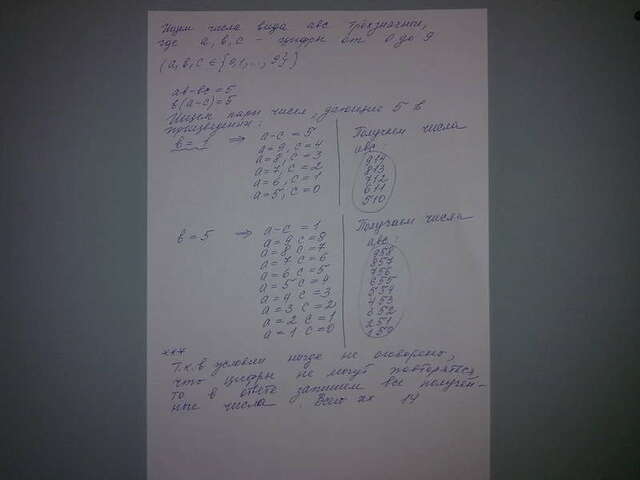 Ищем числа вида авс трёхзначные,
где а, в, с - цифры от 0 до 9
(а, в, с ∈ {0,1,...,9})
ав-вс=5
в(а-с)=5
Ищем пары чисел, дающие 5 в
произведении:
в=1 ⇒ а-с=5
а=9, с=4
а=8, с=3
а=7, с=2
а=6, с=1
а=5, с=0
Получаем числа
авс:
914
813
712
611
510
в=5 ⇒ а-с=1
а=9 с=8
а=8 с=7
а=7 с=6
а=6 с=5
а=5 с=4
а=4 с=3
а=3 с=2
а=2 с=1
а=1 с=0
Получаем числа
авс:
958
857
756
655
554
453
352
251
150
***
Т.к. в условии нигде не оговорено,
что цифры не могут повторяться,
то в ответе запишем все получен-
ные числа. Всего их 14